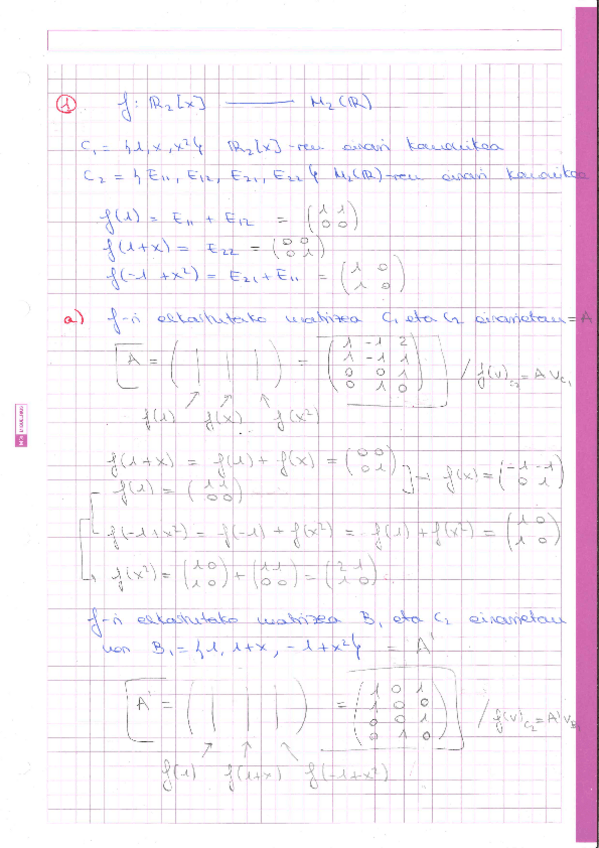 1 f: ℝ₂[x] ——— M₂(ℝ)
C₁ = {1, x, x²} ℝ₂[x]-ren oinarri kanonikoa
C₂ = {E₁₁, E₁₂, E₂₁, E₂₂} M₂(ℝ)-ren oinarri kanonikoa
f(1) = E₁₁ + E₁₂ = (1 1; 0 0)
f(1+x) = E₂₂ = (0 0; 0 1)
f(-1+x²) = E₂₁ + E₁₁ = (1 0; 1 0)
a) f-ri elkartutako matrizea C₁ eta C₂ oinarrietan = A
A = ( | | | ) = (1 -1 2; 1 -1 1; 0 0 1; 0 1 0) / f(v)_C₂ = A v_C₁
f(1) f(x) f(x²)
f(1+x) = f(1) + f(x) = (0 0; 0 1)
f(1) = (1 1; 0 0) → f(x) = (-1 -1; 0 1)
f(-1+x²) = f(-1) + f(x²) = -f(1) + f(x²) = (1 0; 1 0)
f(x²) = (1 0; 1 0) + (1 1; 0 0) = (2 1; 1 0)
f-ri elkartutako matrizea B₁ eta C₂ oinarrietan
non B₁ = {1, 1+x, -1+x²} = A'
A' = ( | | | ) = (1 0 1; 1 0 0; 0 0 1; 0 1 0) / f(v)_C₂ = A' v_B₁
f(1) f(1+x) f(-1+x²)